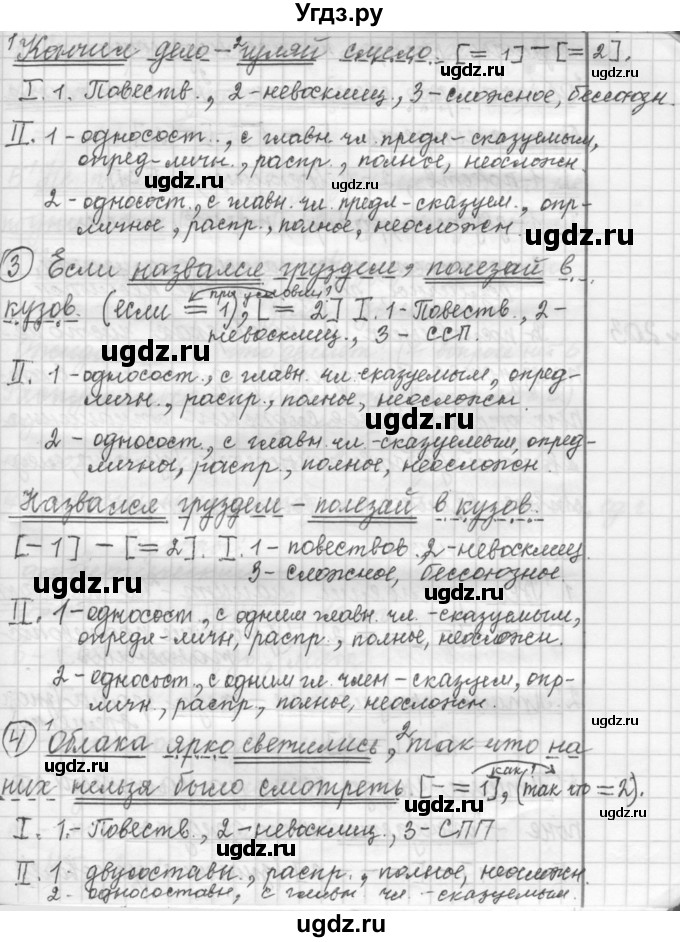 Угдз.ру
¹Кончил дело – ²гуляй смело. [= 1] – [= 2].
I. 1. Повеств., 2-невосклиц., 3-сложное, бессоюзн.
ugdz.ru ugdz.ru
II. 1 - односост.., с главн. чл. предл - сказуемым,
опред-личн., распр., полное, неосложн.
ugdz.ru ugdz.ru
2 - односост., с главн. чл. предл - сказуем., опр-
личное, распр., полное, неосложн.
ugdz.ru
③ Если назвался груздем, полезай в
кузов. (если = 1), [= 2] I. 1-Повеств., 2-
при условии?
невосклиц., 3 - ССП.
ugdz.ru
II. 1 - односост., с главн. чл. сказуемым, опред-
личн., распр., полное, неосложн.
ugdz.ru
2 - односост., с главн. чл. - сказуемым, опред-
личны, распр., полное, неосложн.
ugdz.ru
Назвался груздем – полезай в кузов.
[- 1] – [= 2]. I. 1 - повествов. 2-невосклиц.
3 - сложное, бессоюзное.
ugdz.ru ugdz.ru
II. 1 - односост., с одним главн. чл. - сказуемым,
определ-личн, распр., полное, неосложн.
ugdz.ru
2 - односост., с одним гл. член - сказуем, опр-
личн., распр., полное, неосложн.
ugdz.ru ugdz.ru
④ ¹Облака ярко светились, ²так что на
них нельзя было смотреть. [- = 1], (так что = 2).
как?
ugdz.ru
I. 1.- Повеств., 2 - невосклиц., 3 - СПП
ugdz.ru
II. 1 - двусоставн., распр., полное, неосложн.
2 - односоставн, с главн чл. - сказуемым.
ugdz.ru ugdz.ru